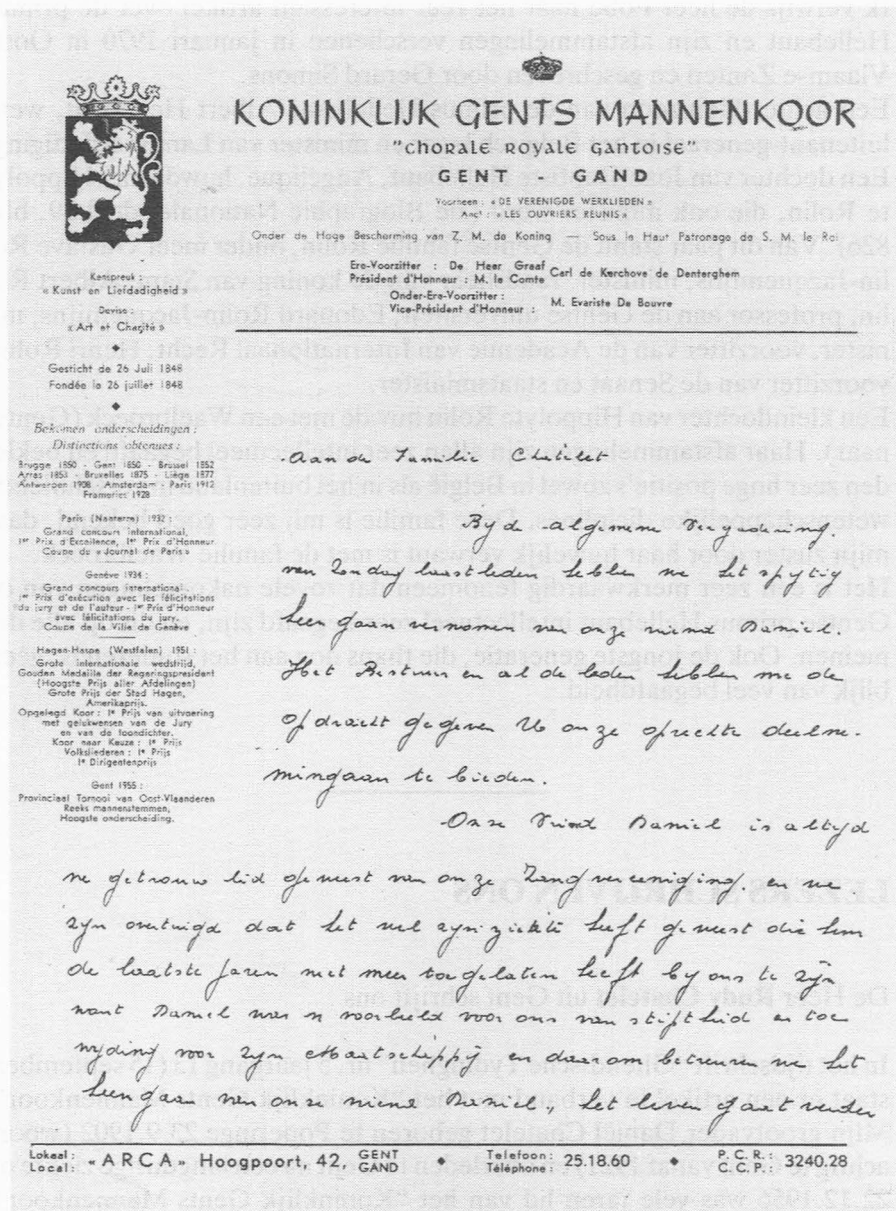 KONINKLIJK GENTS MANNENKOOR
"CHORALE ROYALE GANTOISE"
GENT - GAND
Voorheen : « DE VERENIGDE WERKLIEDEN »
Anct « LES OUVRIERS REUNIS »
Onder de Hoge Bescherming van Z. M. de Koning — Sous le Haut Patronage de S. M. le Roi
Ere-Voorzitter : De Heer Graaf
Président d'Honneur : M. le Comte Carl de Kerchove de Denterghem
Onder-Ere-Voorzitter :
Vice-Président d'Honneur M. Evariste De Bouvre
Kenspreuk :
« Kunst en Liefdadigheid »
Devise :
« Art et Charité »
Gesticht de 26 Juli 1848
Fondée le 26 juillet 1848
Bekomen onderscheidingen :
Distinctions obtenues :
Brugge 1850 - Gent 1850 - Brussel 1852
Arras 1853 - Bruxelles 1875 - Liège 1877
Antwerpen 1908 - Amsterdam - Paris 1912
Frameries 1928
Paris (Nanterre) 1932 :
Grand concours international,
1er Prix d'Excellence, 1er Prix d'Honneur
Coupe du « Journal de Paris »
Genève 1934 :
Grand concours international :
1er Prix d'exécution avec les félicitations
du jury et de l'auteur - 1er Prix d'Honneur
avec félicitations du jury.
Coupe de la Ville de Genève
Hagen-Haspe (Westfalen) 1951 :
Grote internationale wedstrijd,
Gouden Medaille der Regeringspresident
(Hoogste Prijs aller Afdelingen)
Grote Prijs der Stad Hagen,
Amerikaprijs.
Opgelegd Koor : 1e Prijs van uitvoering
met gelukwensen van de Jury
en van de toondichter.
Koor naar Keuze : 1e Prijs
Volksliederen : 1e Prijs
1e Dirigentenprijs
Gent 1955 :
Provinciaal Tornooi van Oost-Vlaanderen
Reeks mannenstemmen,
Hoogste onderscheiding.
Aan de Familie Chatelet
Byd algemene Vergadering.
van Zondag laatstleden hebben we het spytig
heengaan vernomen van onze vriend Daniel.
Het Bestuur en al de leden hebben me de
opdracht gegeven U onze oprechte deelne-
mingaan te bieden.
Onze Vriend Daniel is altyd
ne getrouw lid geweest van onze Zangvereeniging. en we
zyn overtuigd dat het wel zyn ziekte heeft geweest die hem
de laatste jaren niet meer toegelaten heeft by ons te zyn
want Daniel was 'n voorbeeld voor ons van stiptheid en toe
wyding voor zyn Maatschappij en daarom betreuren we het
heengaan van onze vriend Daniel, het leven gaat verder
Lokaal :
Local : « ARCA » Hoogpoort, 42, GENT GAND ♦ Telefoon : Téléphone : 25.18.60 ♦ P.C.R. : C.C.P. : 3240.28